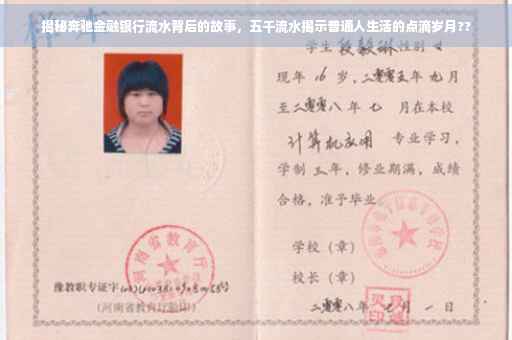 揭秘奔驰金融银行流水背后的故事，五千流水揭示普通人生活的点滴岁月??
学生段毅琳性别女
现年16岁，二零零五年九月
至二零零八年七月在本校
计算机应用 专业学习，
学制三年，修业期满，成绩
合格，准予毕业
学校（章）
校长（章）
二零零八年七月一日
河南省教育厅
豫教职专证字
（河南省教育厅验印）